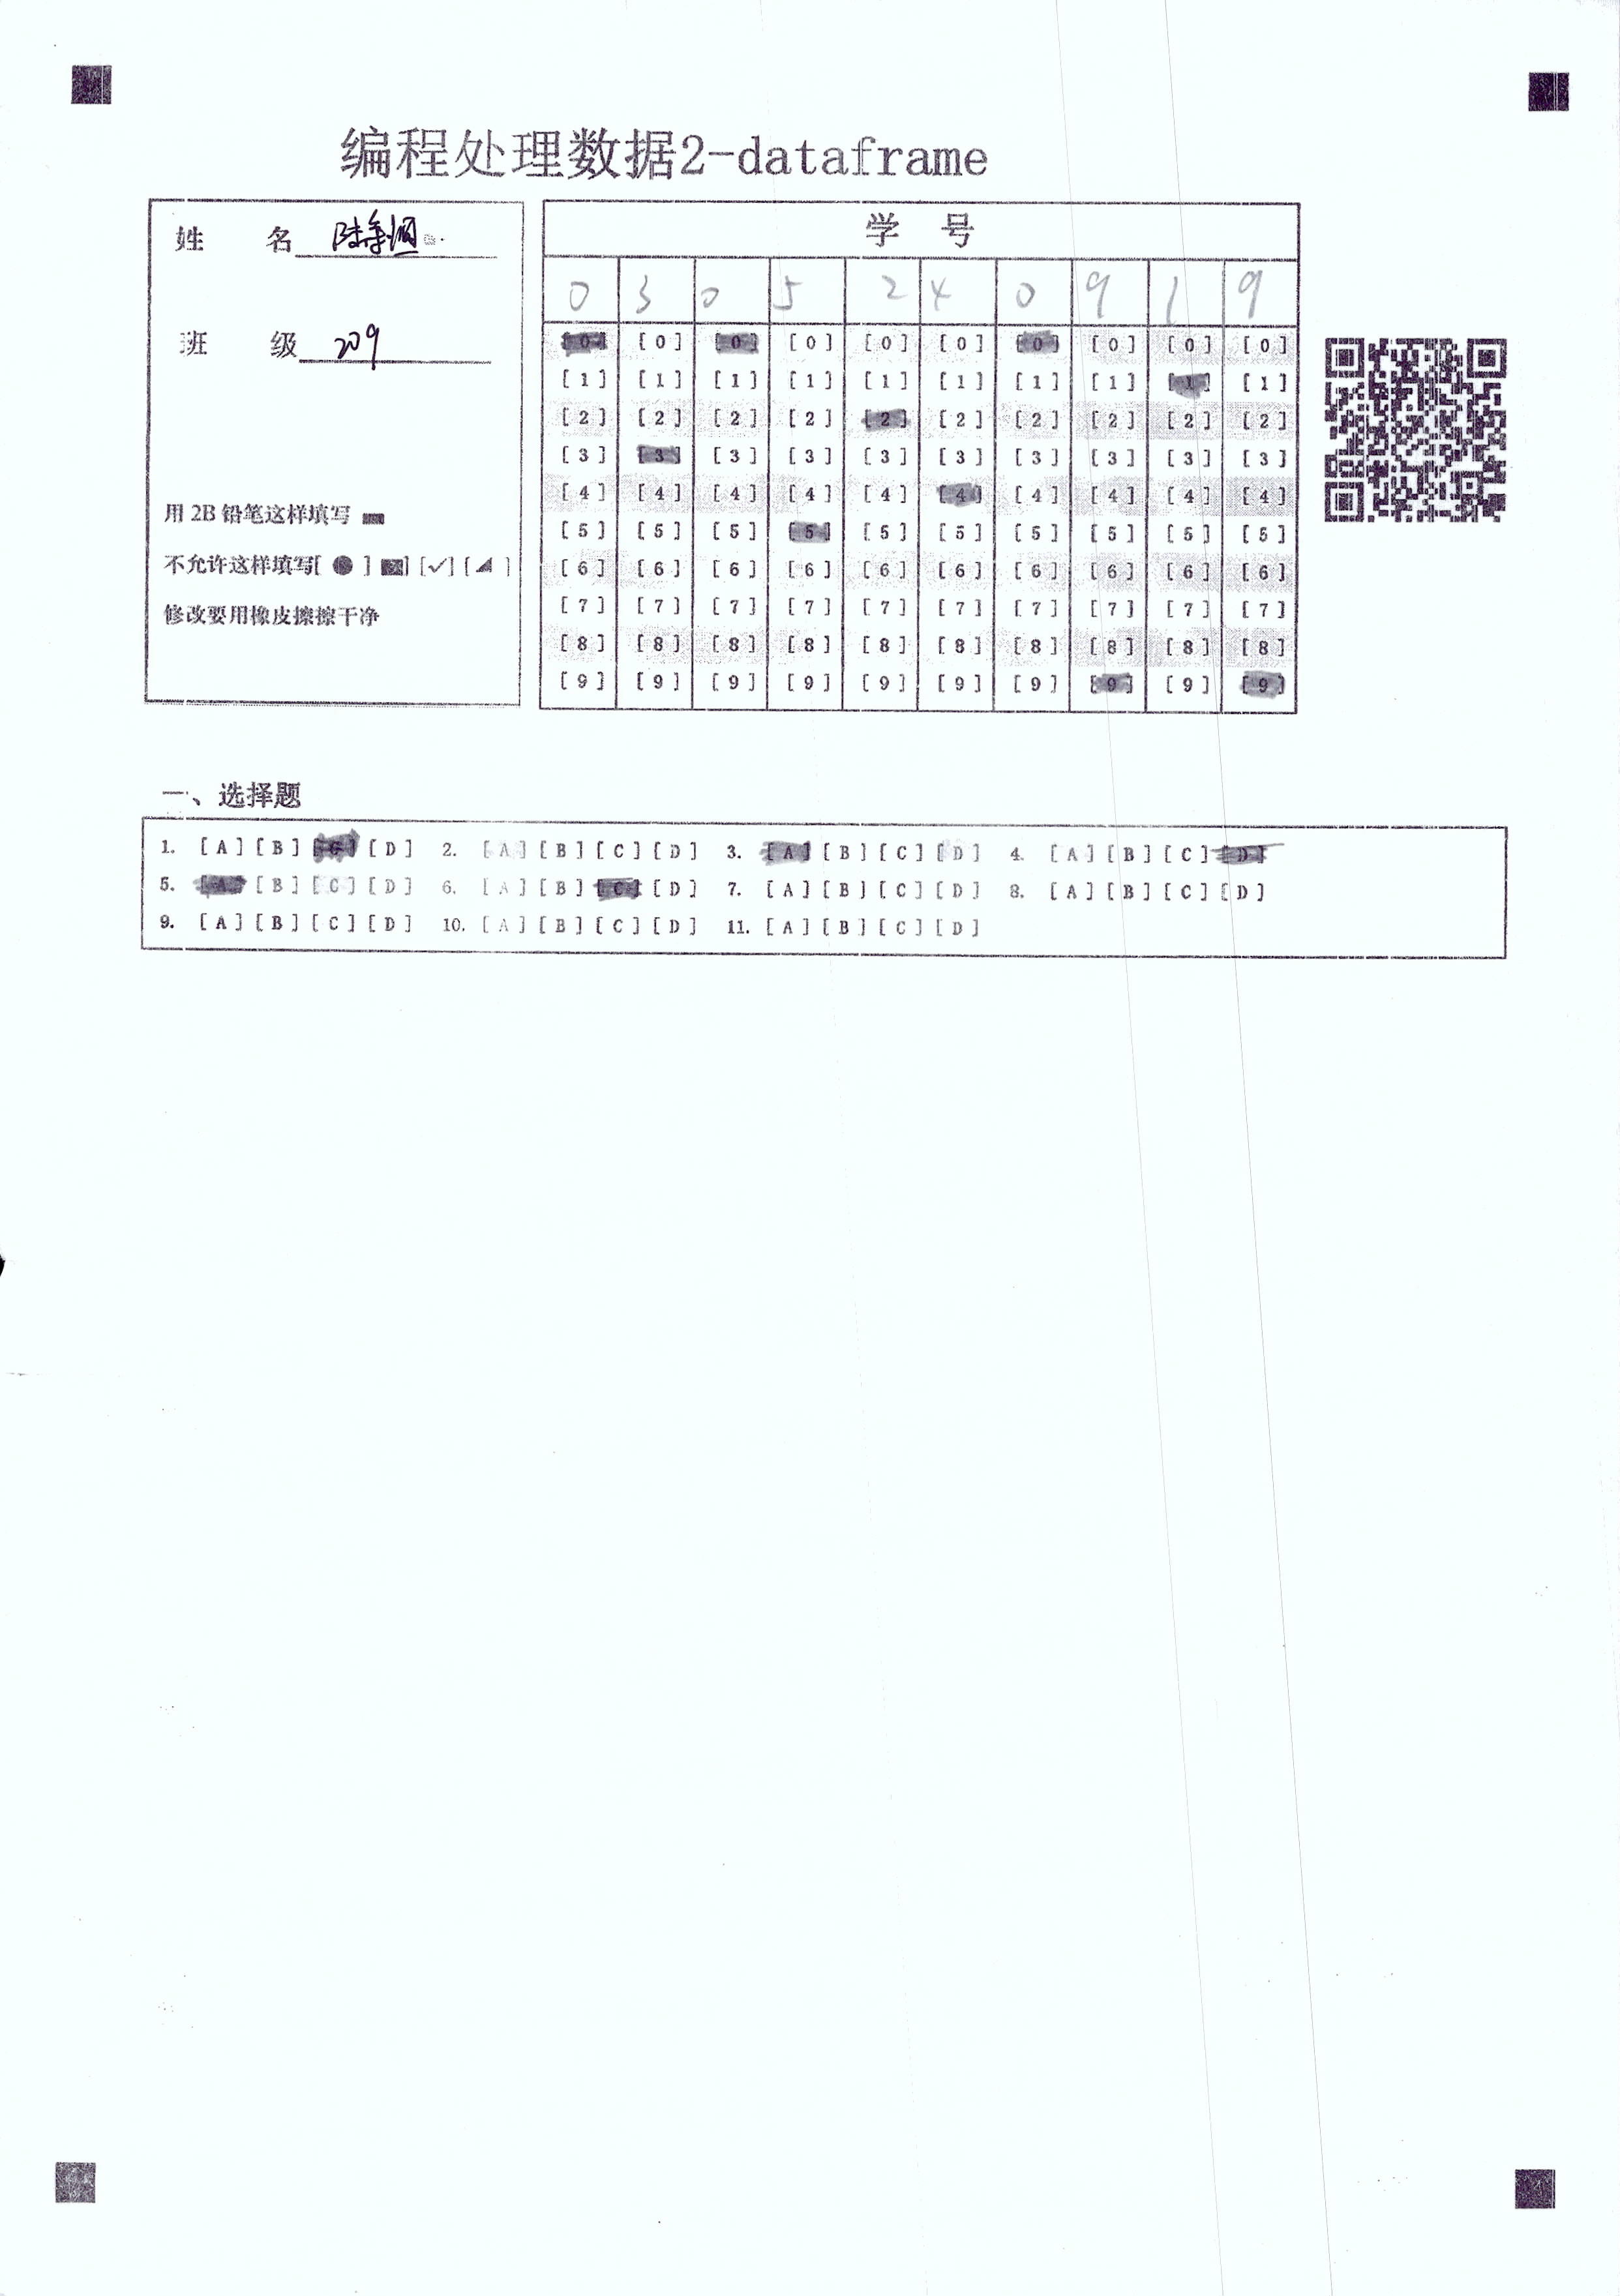 编程处理数据2-dataframe
姓 名
班 级 209
用 2B 铅笔这样填写
不允许这样填写[ ● ] [ ] [✓] [◢ ]
修改要用橡皮擦擦干净
学 号
0 3 0 5 2 4 0 9 1 9
[0] [0] [0] [0] [0] [0] [0] [0] [0] [0]
[1] [1] [1] [1] [1] [1] [1] [1] [1] [1]
[2] [2] [2] [2] [2] [2] [2] [2] [2] [2]
[3] [3] [3] [3] [3] [3] [3] [3] [3] [3]
[4] [4] [4] [4] [4] [4] [4] [4] [4] [4]
[5] [5] [5] [5] [5] [5] [5] [5] [5] [5]
[6] [6] [6] [6] [6] [6] [6] [6] [6] [6]
[7] [7] [7] [7] [7] [7] [7] [7] [7] [7]
[8] [8] [8] [8] [8] [8] [8] [8] [8] [8]
[9] [9] [9] [9] [9] [9] [9] [9] [9] [9]
一、选择题
1. [A] [B] [C] [D] 2. [A] [B] [C] [D] 3. [A] [B] [C] [D] 4. [A] [B] [C] [D]
5. [A] [B] [C] [D] 6. [A] [B] [C] [D] 7. [A] [B] [C] [D] 8. [A] [B] [C] [D]
9. [A] [B] [C] [D] 10. [A] [B] [C] [D] 11. [A] [B] [C] [D]